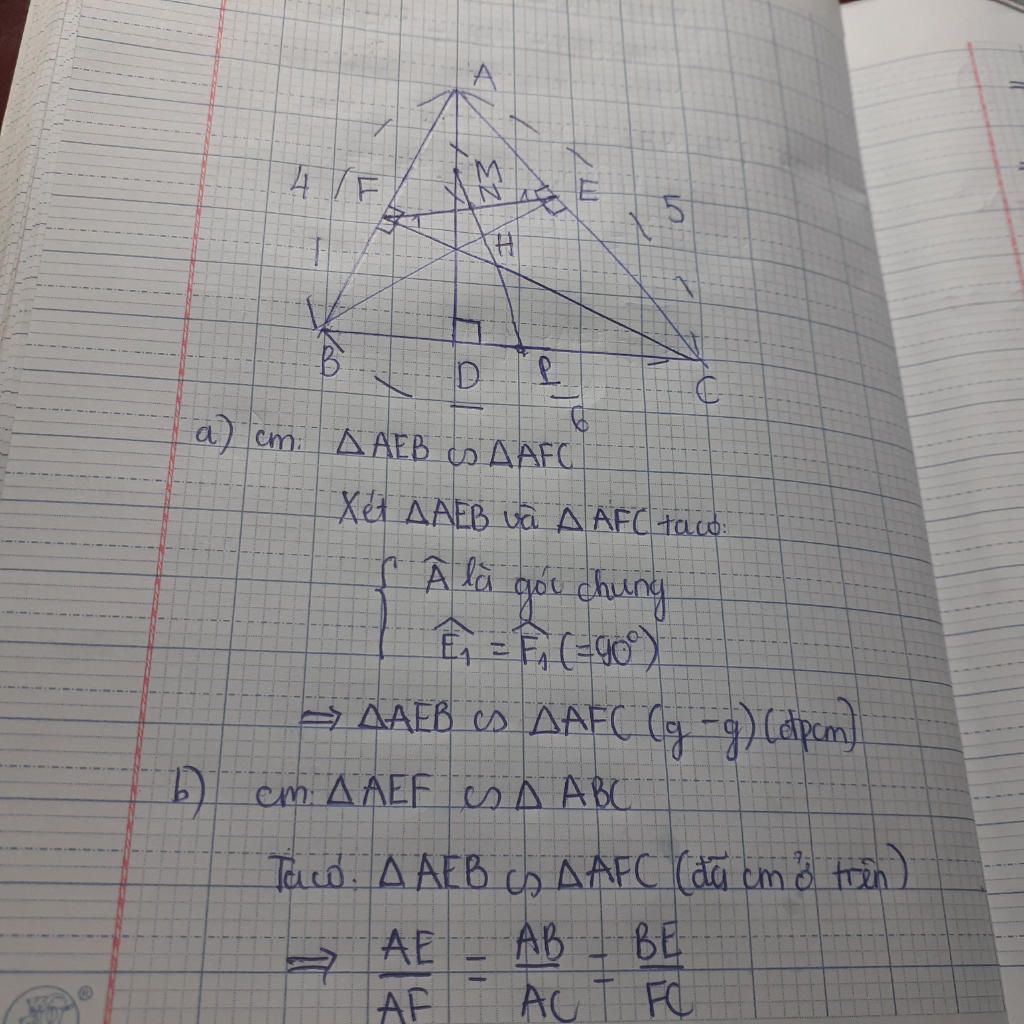 A
4 F M N E 5
H
B D P C
6
a) cm: ΔAEB ∽ ΔAFC
Xét ΔAEB và ΔAFC ta có:
Â là góc chung
Ê₁ = F̂₁ (=90°)
⇒ ΔAEB ∽ ΔAFC (g-g) (đpcm)
b) cm: ΔAEF ∽ Δ ABC
Ta có: ΔAEB ∽ ΔAFC (đã cm ở trên)
⇒ AE/AF = AB/AC = BE/FC